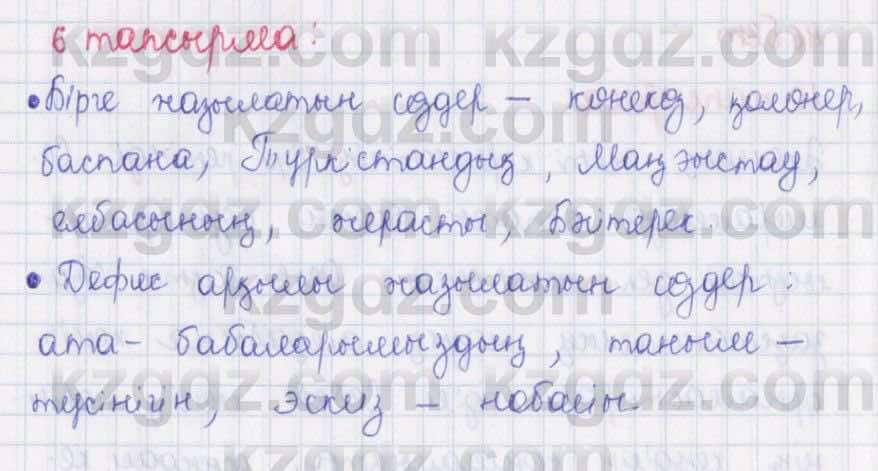 6 тапсырма:
• Бірге жазылатын сөздер – көнекөз, қолөнер,
баспана, Түркістандық, Маңғыстау,
елбасының, жерасты, Бәйтерек.
• Дефис арқылы жазылатын сөздер:
ата- бабаларымыздың, таным –
түсінігін, эскиз – нобайы.